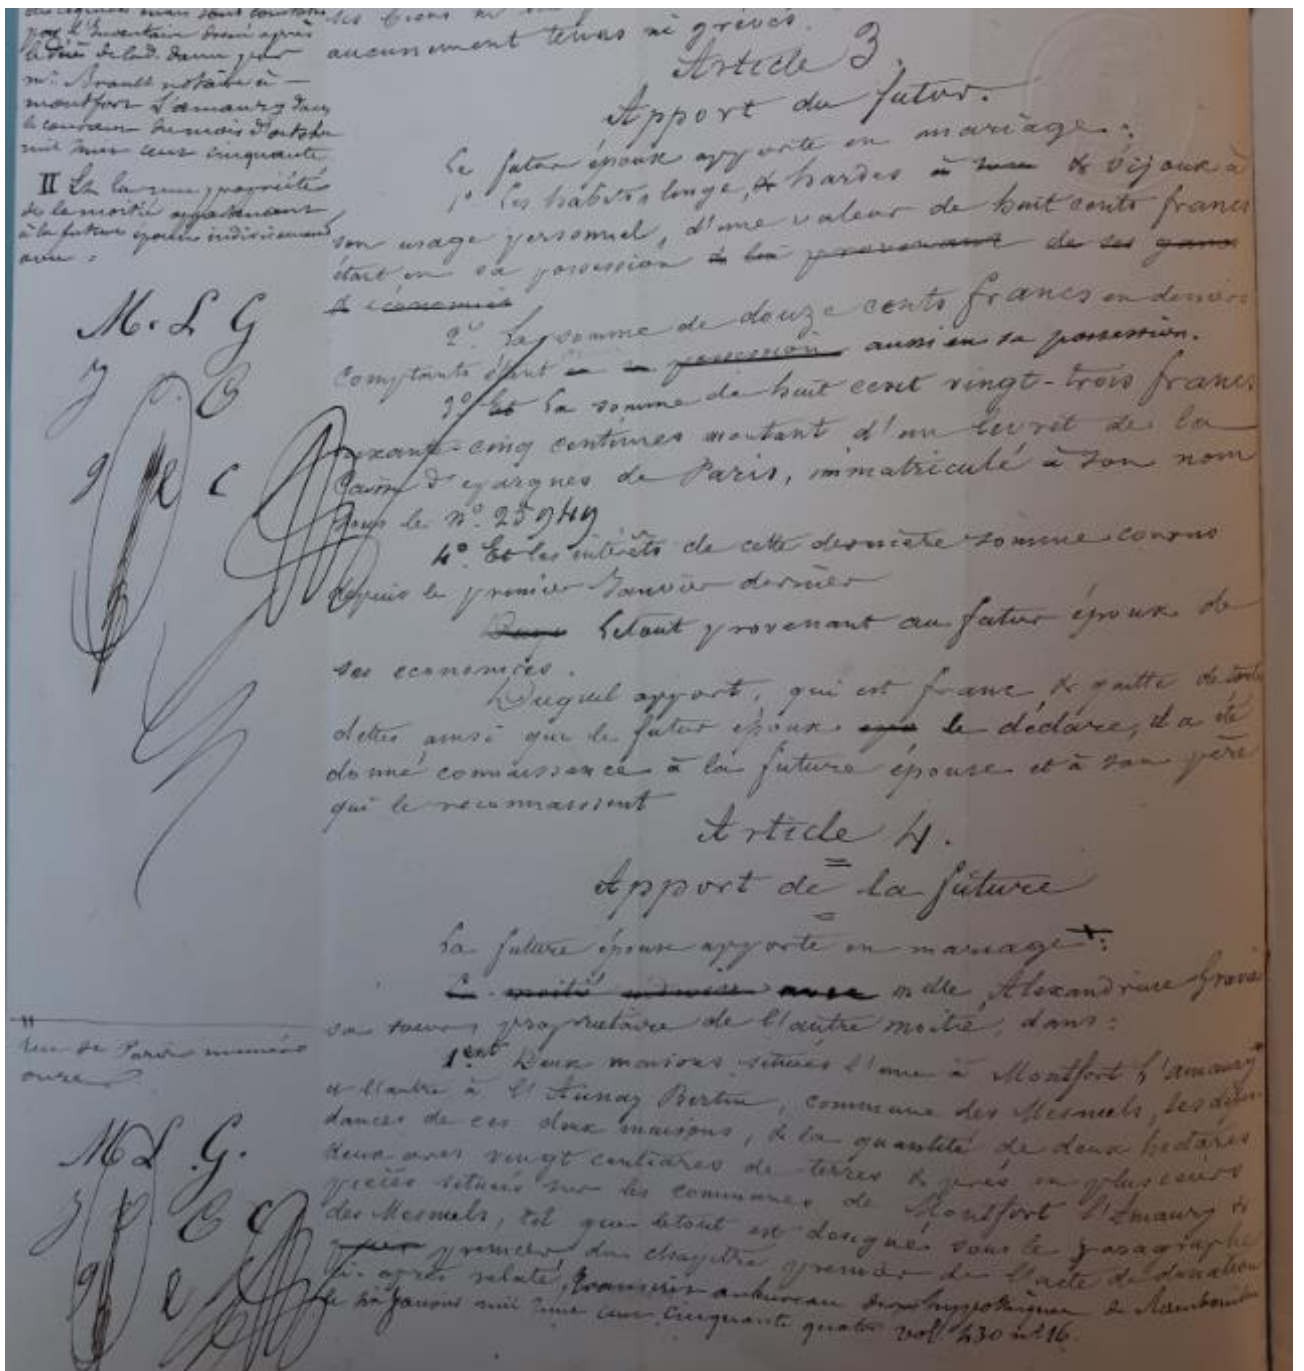 par l'Inventaire dressé après
le décès de lad. dame par
Me. Brault notaire à
montfort L'amaury dans
le courant du mois d'octobre
mil huit cent cinquante
II Et la nue propriété
de la moitié appartenant
à la future épouse indivisément
avec :
M. L G
rue de Paris numéro
onze
M L . G.
aucunement tenus ni grévés.
Article 3.
Apport du futur.
Le futur époux apporte en mariage :
1° Les habits linge, & hardes & bijoux à
son usage personnel, d'une valeur de huit cents francs
étant en sa possession provenant de ses gains
& économies
2° La somme de douze cents francs en deniers
Comptants étant en sa possession aussi en sa possession.
3° Et La somme de huit cent vingt-trois francs
soixante-cinq centimes montant d'un livret de la
Caisse d'epargnes de Paris, immatriculé à son nom
sous le n° 25949
4° Et les intérêts de cette dernière somme courus
depuis le premier Janvier dernier
Le tout provenant au futur époux de
ses economies.
Duquel apport, qui est franc & quitte de toutes
dettes ainsi que le futur époux le déclare, il a été
donné connaissance à la future épouse et à son père
qui le reconnaissent
Article 4.
Apport de la future
La future épouse apporte en mariage :
La moitié indivise avec melle Alexandrine
sa soeur propriétaire de l'autre moitié, dans :
1ent Deux maisons situées l'une à Montfort l'amaury
& l'autre à l'Aunay Bertin, commune des Mesnuls, les dépen
dances de ces deux maisons, & la quantité de deux hectares
deux ares vingt centiares de terres & prés en plusieurs
pièces situées sur les communes de Montfort l'amaury &
des Mesnuls, tel que le tout est désigné sous le paragraphe
premier du chapitre premier de l'acte de donation
ci-après relaté, transcrit au bureau des hypothèques de Rambouillet
le six Janvier mil huit cent cinquante quatre vol. 430 n° 16.